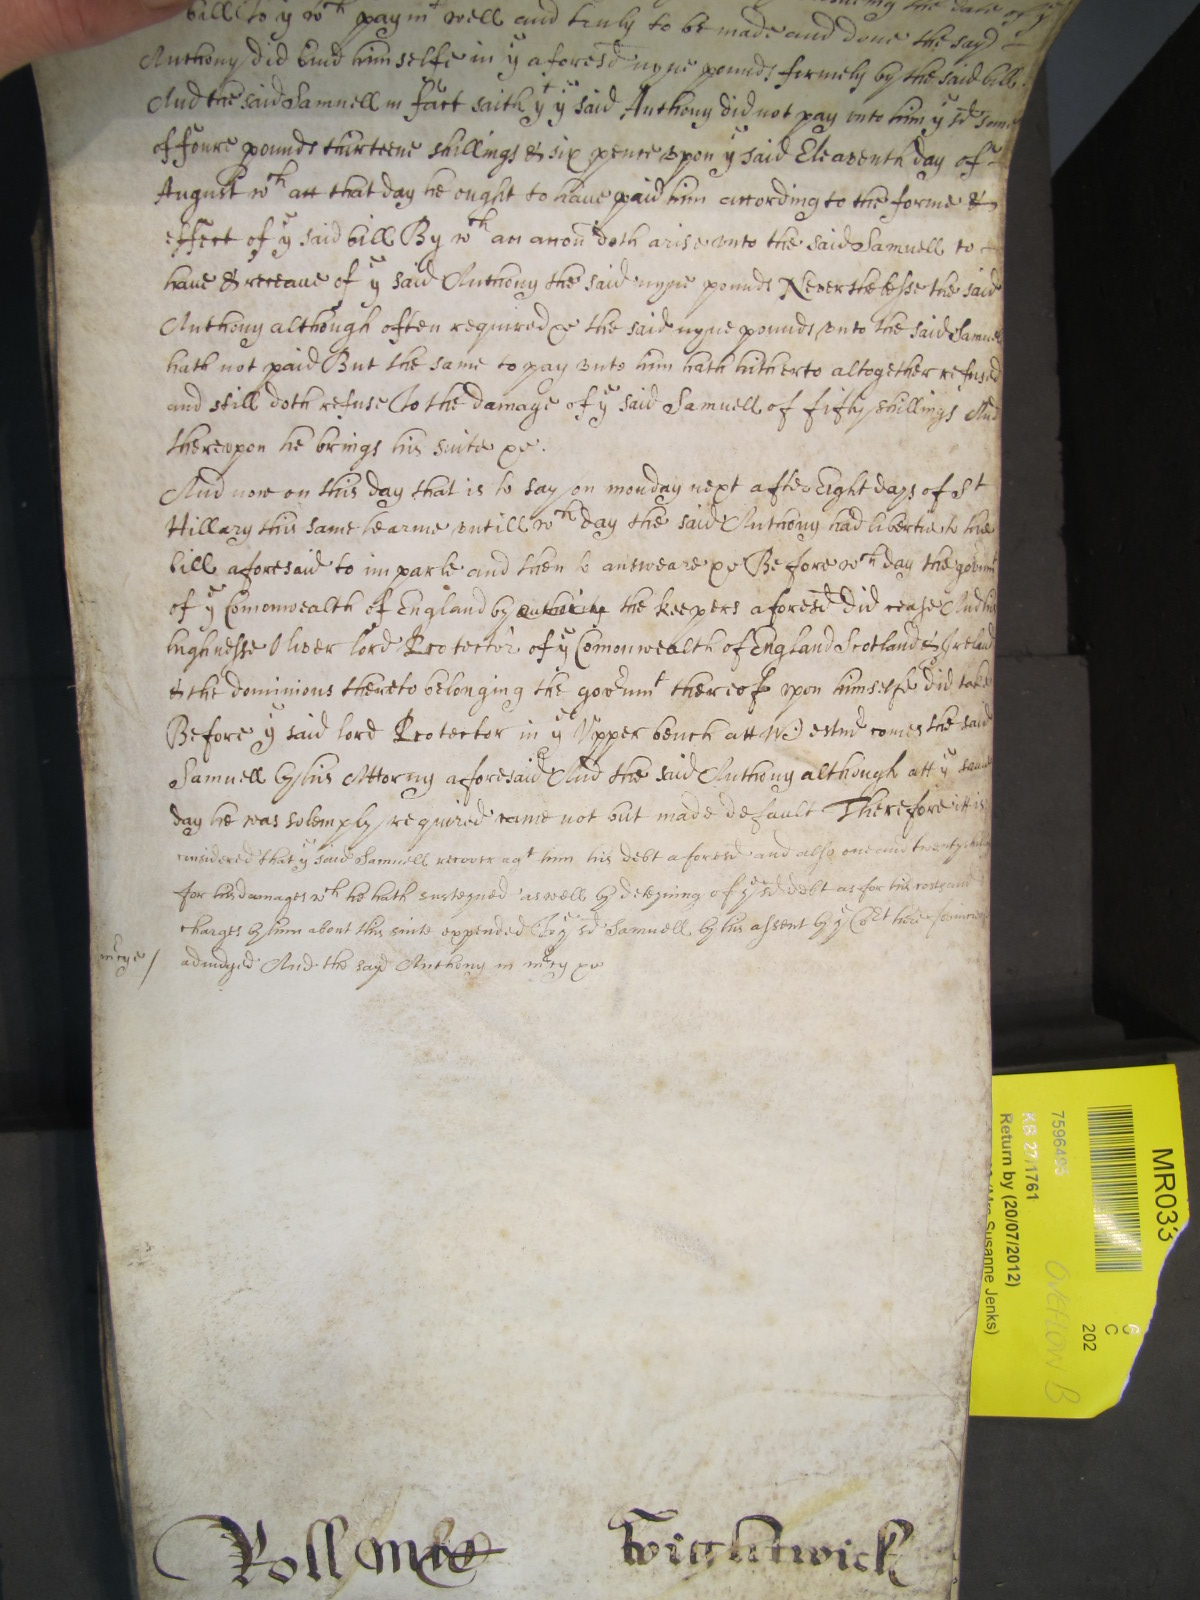 bill To yᵉ wᶜʰ paymᵗ well and truly to be made and done the sayd
Anthony did bind himselfe in yᵉ aforesd nyne pounds firmely by the said bill.
And the said Samuell in fact saith yᵗ yᵉ said Anthony did not pay vnto him yᵉ sd some
of foure pounds thirteene shillings & six pence vpon yᵉ said Eleaventh day of
August wᶜʰ att that day he ought to have paid him according to the forme &
effect of yᵉ said bill By wᶜʰ an accon doth arise vnto the said Samuell to
have & receave of yᵉ said Anthony the said nyne pounds Neverthelesse the said
Anthony although often required &c the said nyne pounds vnto the said Samuell
hath not paid But the same to pay vnto him hath hitherto altogether refused
and still doth refuse To the damage of yᵉ said Samuell of fifty shillings And
therevpon he brings his suite &c.
And now on this day that is to say on monday next after Eight days of Sᵗ
Hillary this same tearme vntill wᶜʰ day the said Anthony had libertie to the
bill aforesaid to imparle and then to answeare &c Before wᶜʰ day the govmt
of yᵉ Comonwealth of England by the keepers aforesd did cease And his
highnesse Oliver lord Protector of yᵉ Comonwealth of England Scotland & Ireland
& the dominions thereto belonging the govermᵗ thereof vpon himselfe did take
Before yᵉ said lord Protector in yᵉ Vpper bench att Westmr comes the said
Samuell by his Attorny aforesaid And the said Anthony although att yᵉ same
day he was solemply required came not but made default Therefore itt is
considered that yᵉ said Samuell recover agᵗ him his debt aforesd and also one and twenty
for his damages wᶜʰ he hath susteyned aswell by deteyning of yᵉ sd debt as for his costs and
charges by him about this suite expended To yᵉ sd Samuell by his assent by yᵉ Cort here
mercye / adiudged And the sayd Anthony in mercy &c
Roll Wightwick
MR033
7596495
KB 27/1761
Return by (20/07/2012)
(Mrs Susanne Jenks)
C
202